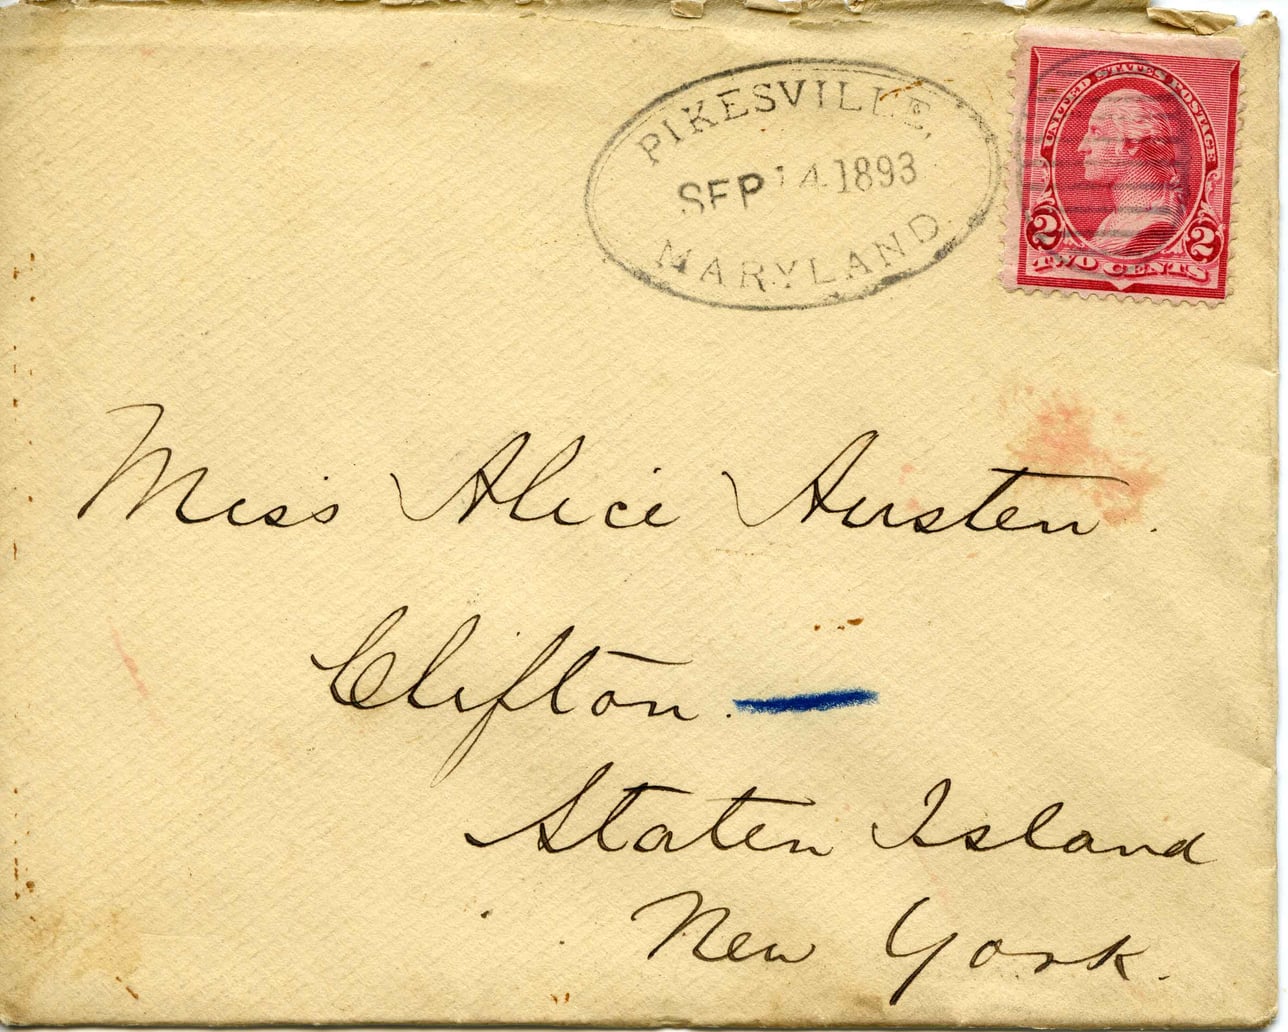 PIKESVILLE,
SEP 14 1893
MARYLAND.
UNITED STATES POSTAGE
2 2
TWO CENTS
Miss Alice Austen.
Clifton.
Staten Island
New York.